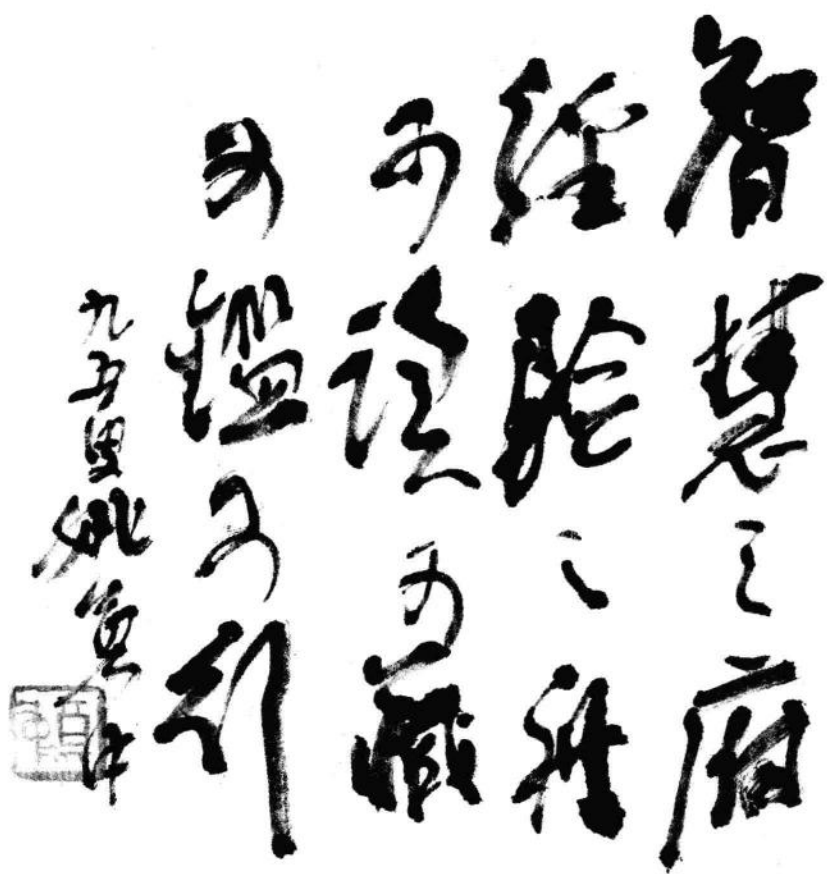 智慧之府
經驗之
可讀可藏
可鑑可引
九五叟姚奠中